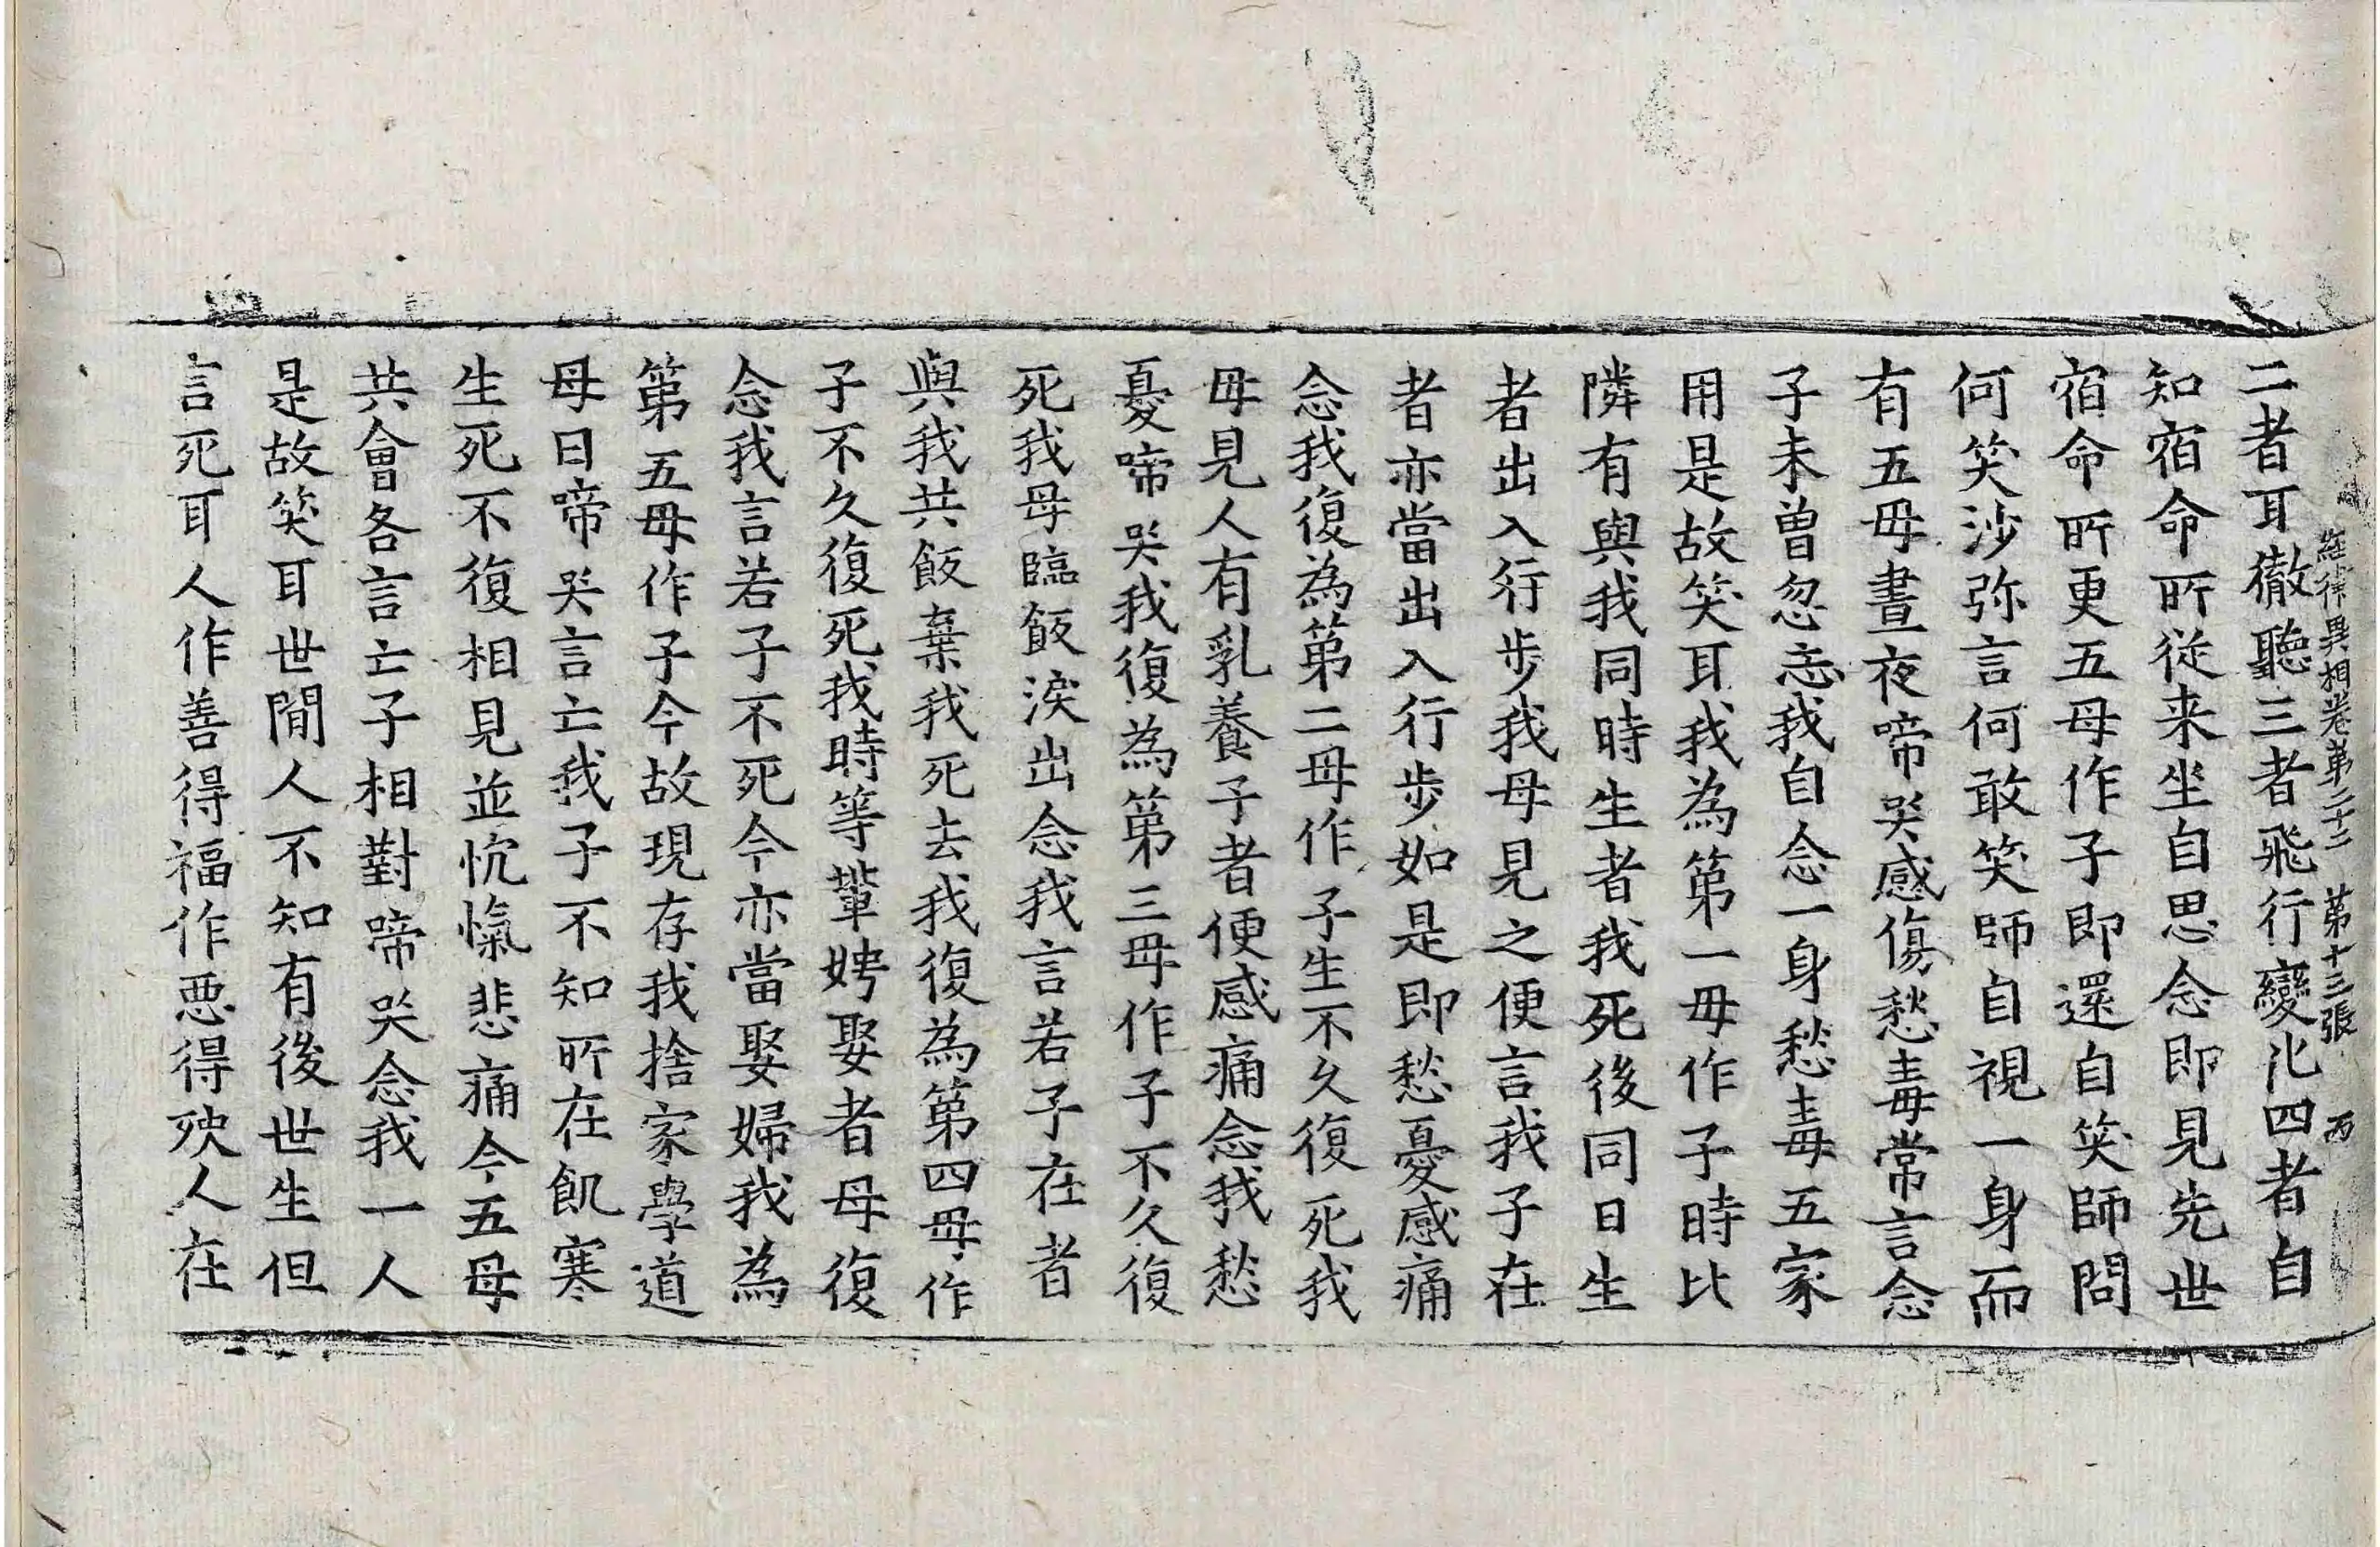 二者耳徹聽三者飛行變化四者自
經律異相卷第二十二 第十三張 丙
知宿命所從来坐自思念即見先世
宿命所更五母作子即還自笑師問
何笑沙弥言何敢笑師自視一身而
有五母晝夜啼哭感傷愁毒常言念
子未曾忽忘我自念一身愁毒五家
用是故笑耳我為第一母作子時比
隣有與我同時生者我死後同日生
者出入行步我母見之便言我子在
者亦當出入行步如是即愁憂感痛
念我復為第二母作子生不久復死我
母見人有乳養子者便感痛念我愁
憂啼哭我復為第三母作子不久復
死我母臨飯淚出念我言若子在者
與我共飯棄我死去我復為第四母作
子不久復死我時等輩娉娶者母復
念我言若子不死今亦當娶婦我為
第五母作子今故現存我捨家學道
母日啼哭言亡我子不知所在飢寒
生死不復相見並忼愾悲痛今五母
共會各言亡子相對啼哭念我一人
是故笑耳世閒人不知有後世生但
言死耳人作善得福作惡得殃人在